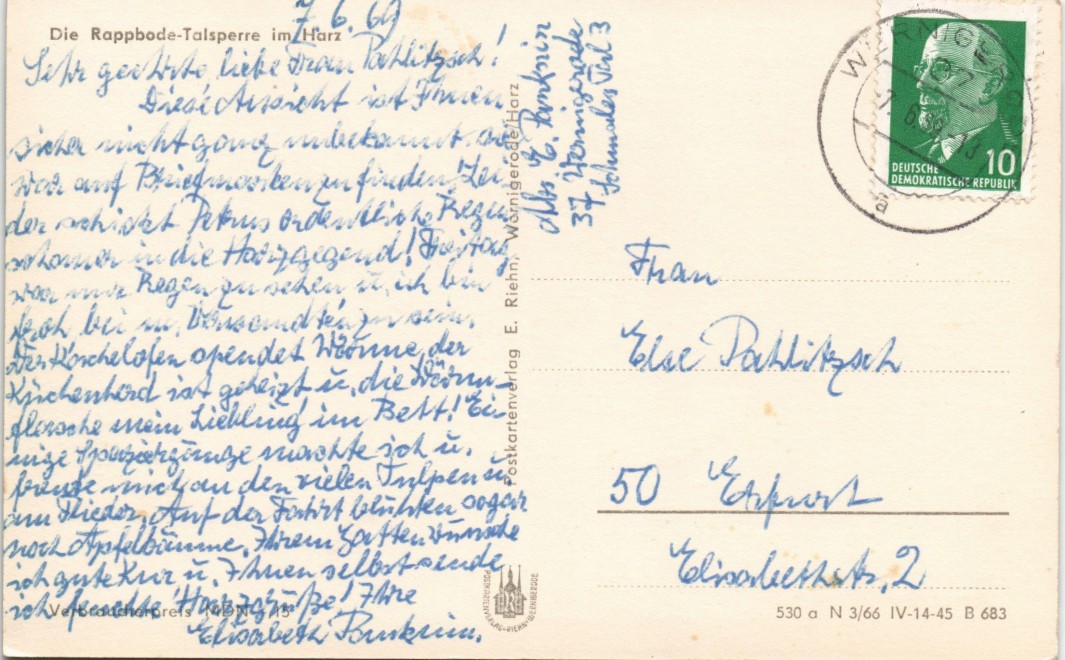 Die Rappbode-Talsperre im Harz
7.6.69
Sehr geehrte, liebe Frau Pahlitzsch!
Diese Ansicht ist Ihnen
sicher nicht ganz unbekannt, sie
war auf Briefmarken zu finden! Lei-
der schickt Petrus ordentliche Regen
schauer in die Harzgegend! Freitag
war nur Regen zu sehen u. ich bin
froh, bei m. Verwandten zu sein.
Der Kachelofen spendet Wärme, der
Küchenherd ist geheizt u. die Wärm-
flasche mein Liebling im Bett! Ei-
nige Spaziergänge machte ich u.
freute mich an den vielen Tulpen u.
am Flieder. Auf der Fahrt blühten sogar
noch Apfelbäume. Ihrem Gatten wünsche
ich gute Kur u. Ihnen selbst sende
ich feuchte Harzgrüße! Ihre
Elisabeth
Verbraucherpreis MDN -,15
Postkartenverlag E. Riehn, Wernigerode/Harz
Abs. E.
37 Wernigerode
3
WERNIGERODE
a
DEUTSCHE
DEMOKRATISCHE REPUBLIK
10
Frau
Else Pahlitzsch
50 Erfurt
Elisabethstr. 2
POSTKARTENVERLAG RIEHN WERNIGERODE
530 a N 3/66 IV-14-45 B 683